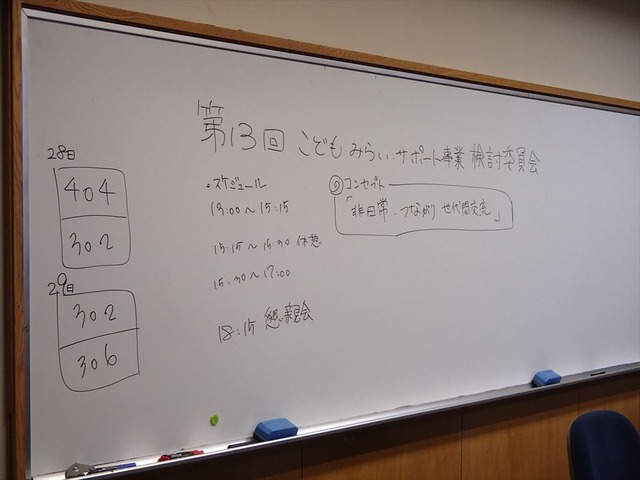 第13回 こども・みらい・サポート事業 検討委員会
28日
404
302
29日
302
306
・スケジュール
13:00～15:15
15:15～15:30 休憩
15:30～17:00
18:15 懇親会
◎コンセプト
「非日常・つながり・世代間交流」